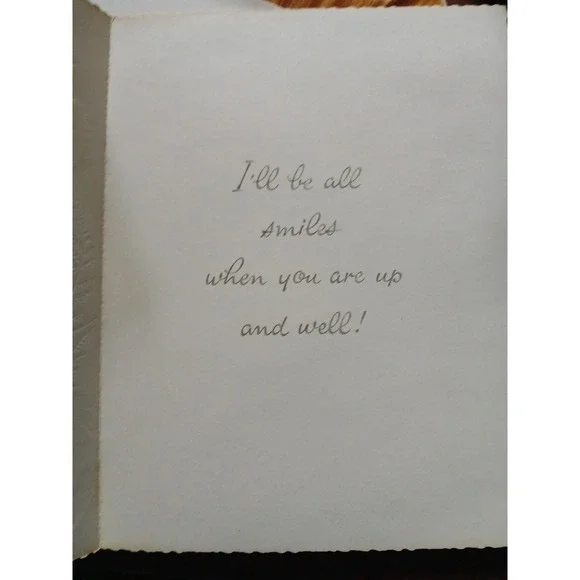 I'll be all
smiles
when you are up
and well!